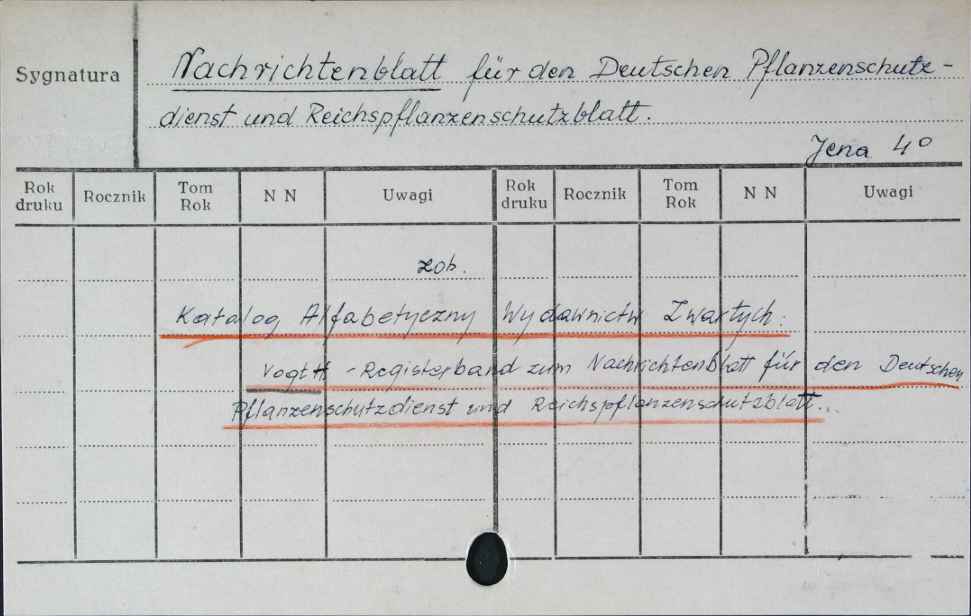 Sygnatura
Nachrichtenblatt für den Deutschen Pflanzenschutz-
dienst und Reichspflanzenschutzblatt.
Jena 4°
Rok druku Rocznik Tom Rok N N Uwagi Rok druku Rocznik Tom Rok N N Uwagi
zob.
Katalog Alfabetyczny Wydawnictw Zwartych:
Vogt H - Registerband zum Nachrichtenblatt für den Deutschen
Pflanzenschutzdienst und Reichspflanzenschutzblatt...